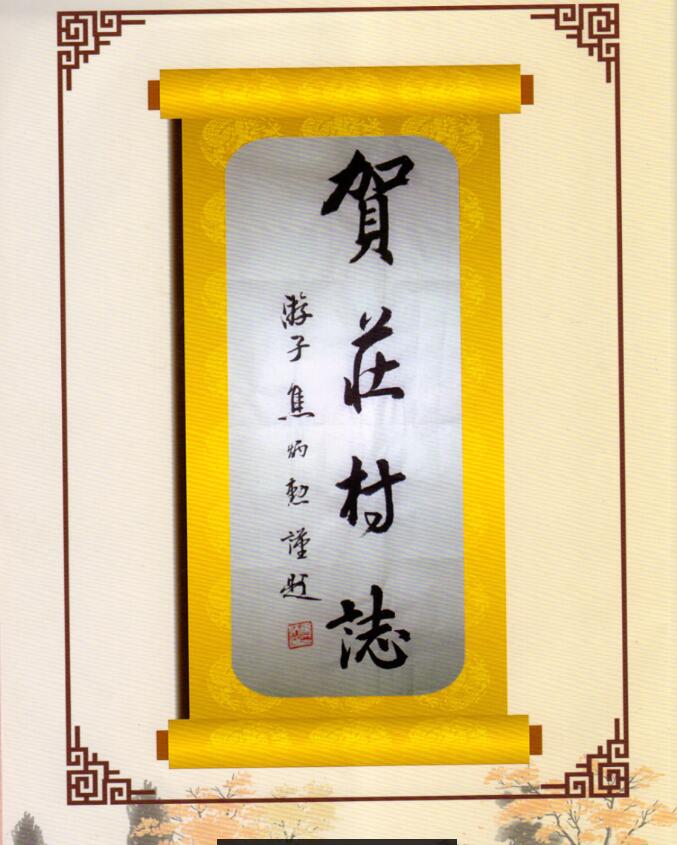 賀莊村誌
游子焦炳勲謹题